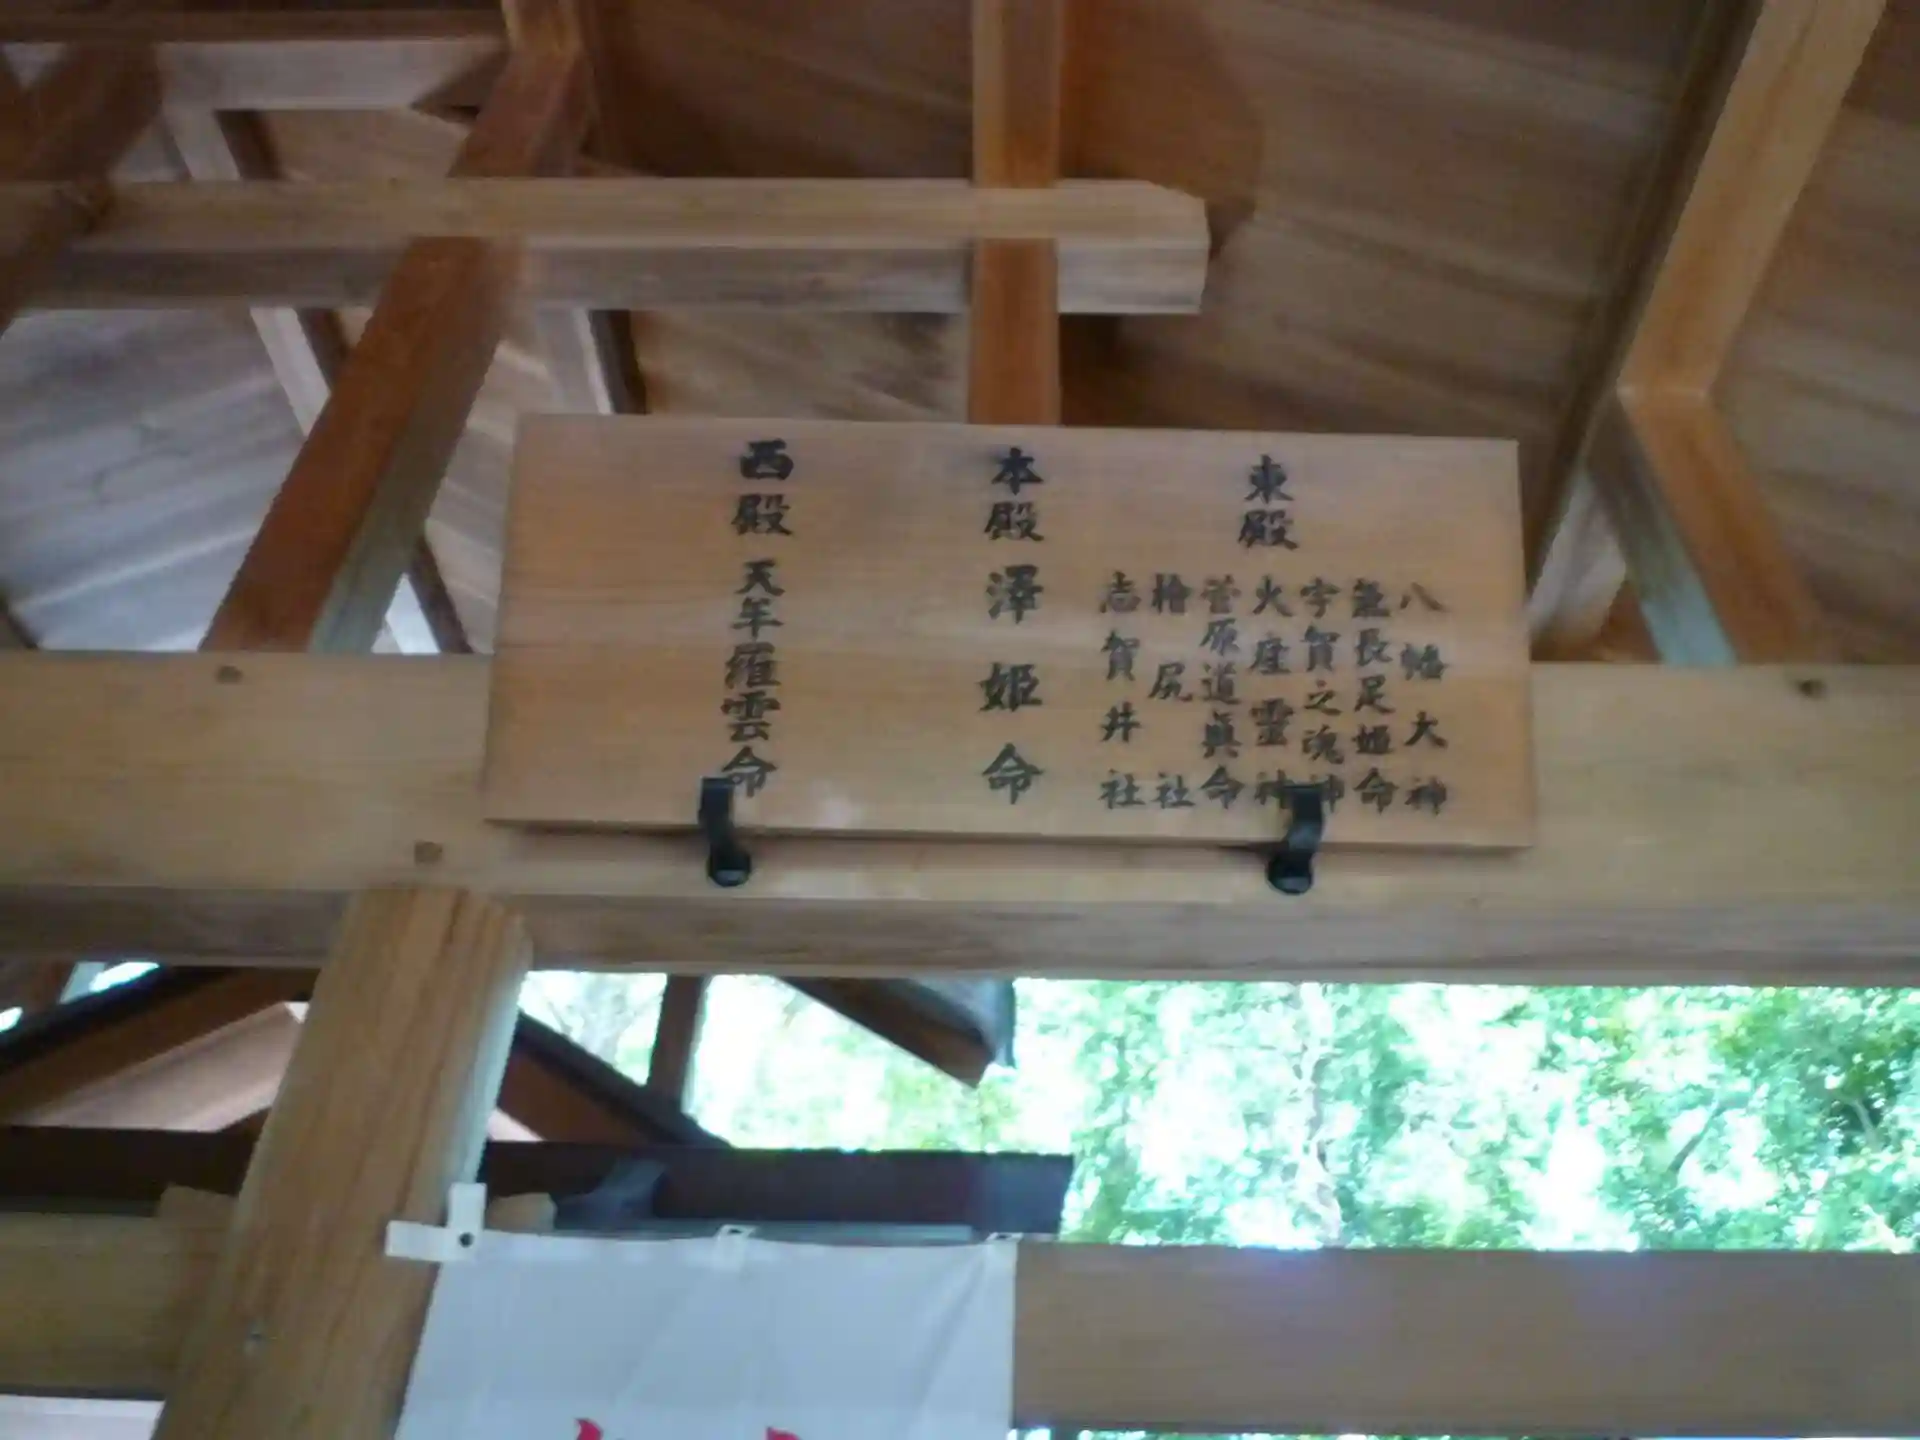 東殿
八幡大神
氣長足姫命
宇賀之魂神
火産霊神
菅原道眞命
檜尻社
志賀井社
本殿 澤姫命
西殿 天年羅雲命